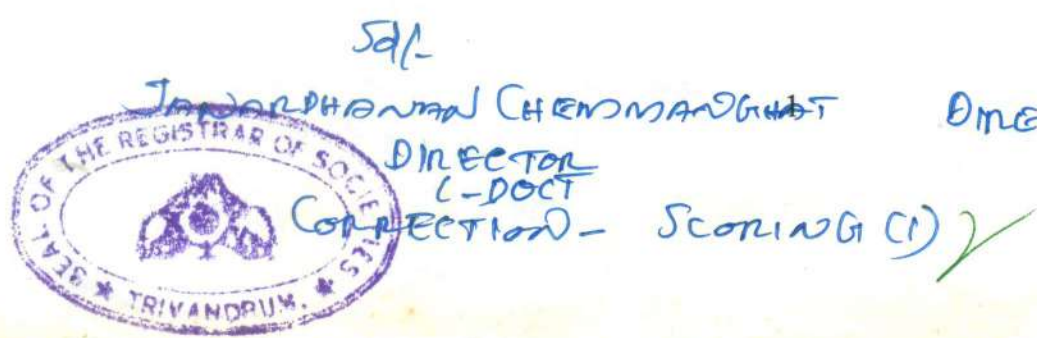 Sd/-
JANARDHANAN CHEMMANGHAT DIRE
DIRECTOR
C-DOCT
CORRECTION - SCORING (1)
SEAL OF THE REGISTRAR OF SOCIETIES
* TRIVANDRUM. *